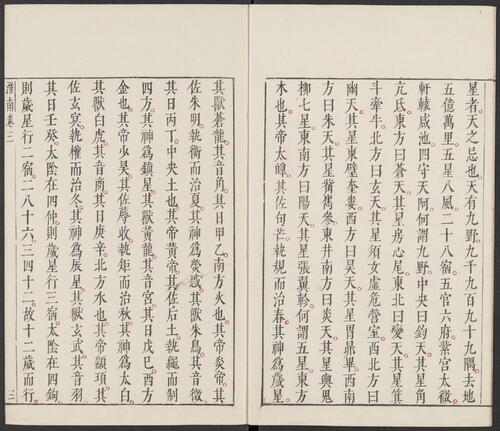 星者天之忌也天有九野九千九百九十九隅去地
五億萬里五星八風二十八宿五官六府紫宮太微
軒轅咸池四守天阿何謂九野中央曰鈞天其星角
亢氐東方曰蒼天其星房心尾東北曰變天其星箕
斗牽牛北方曰玄天其星須女虛危營室西北方曰
幽天其星東壁奎婁西方曰昊天其星胃昴畢西南
方曰朱天其星觜觿參東井南方曰炎天其星輿鬼
柳七星東南方曰陽天其星張翼軫何謂五星東方
木也其帝太皥其佐句芒執規而治春其神爲歲星
其獸蒼龍其音角其日甲乙南方火也其帝炎帝其
佐朱明執衡而治夏其神爲熒惑其獸朱鳥其音徵
其日丙丁中央土也其帝黃帝其佐后土執繩而制
四方其神爲鎮星其獸黃龍其音宮其日戊己西方
金也其帝少昊其佐蓐收執矩而治秋其神爲太白
其獸白虎其音商其日庚辛北方水也其帝顓頊其
佐玄冥執權而治冬其神爲辰星其獸玄武其音羽
其日壬癸太陰在四仲則歲星行三宿太陰在四鉤
則歲星行二宿二八十六三四十二故十二歲而行
淮南卷三
三